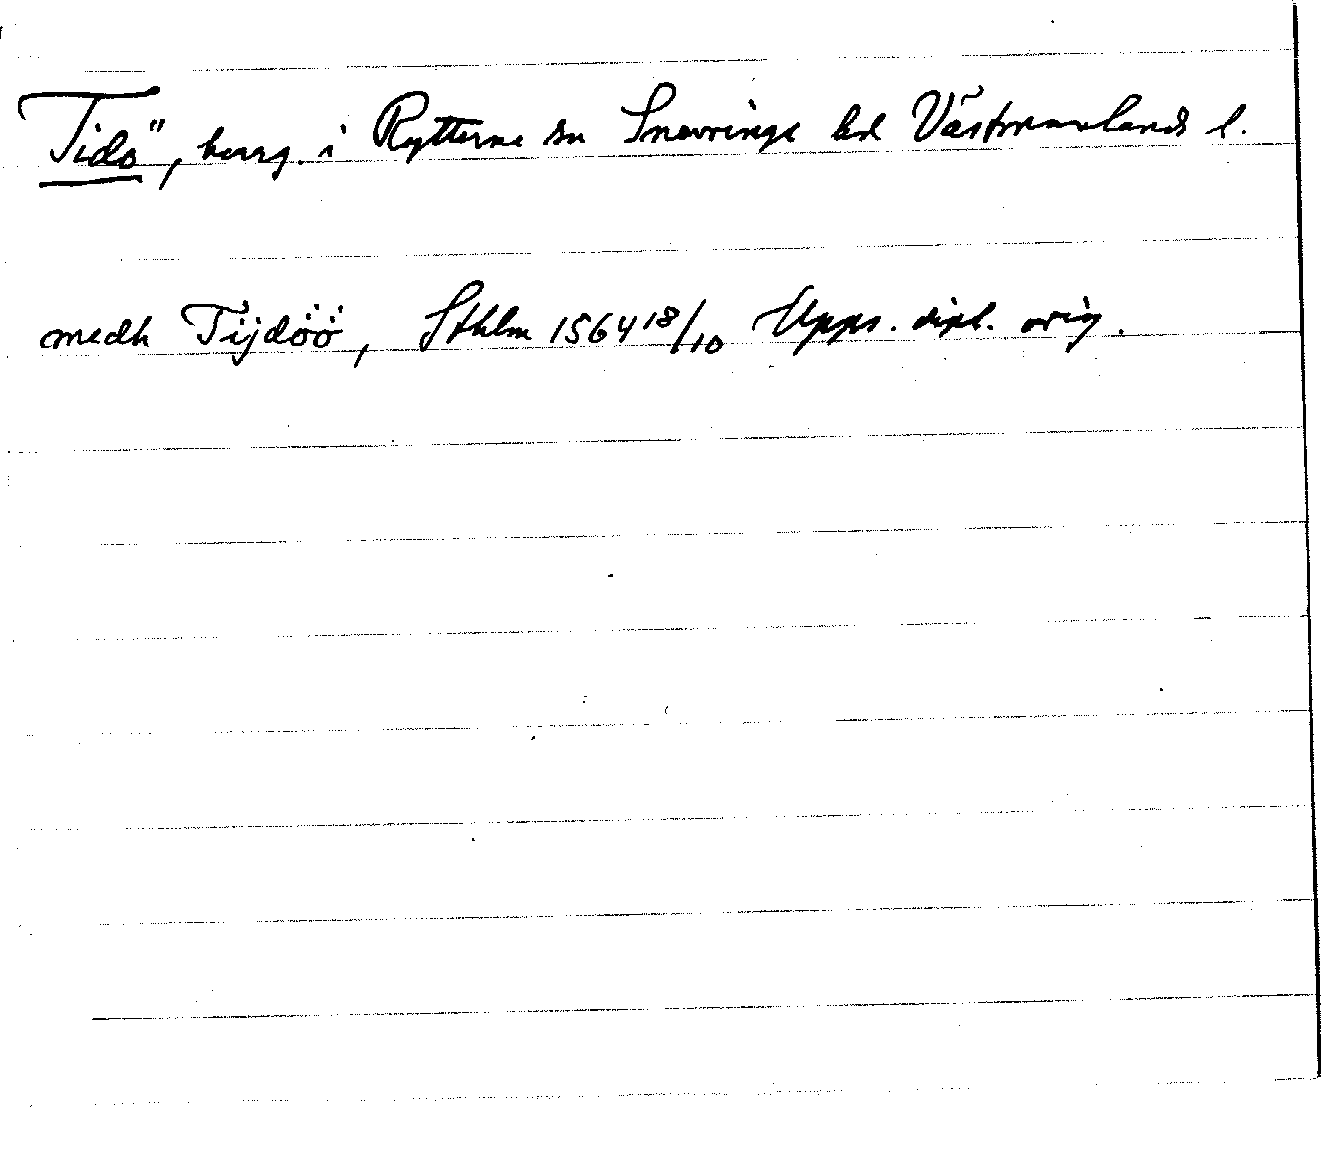 Tidö, herrg. i Rytterne sn Snevringe hd Västmanlands l.
medh Tijdöö, Sthlm 1564 18/10 Upps. dipl. orig.